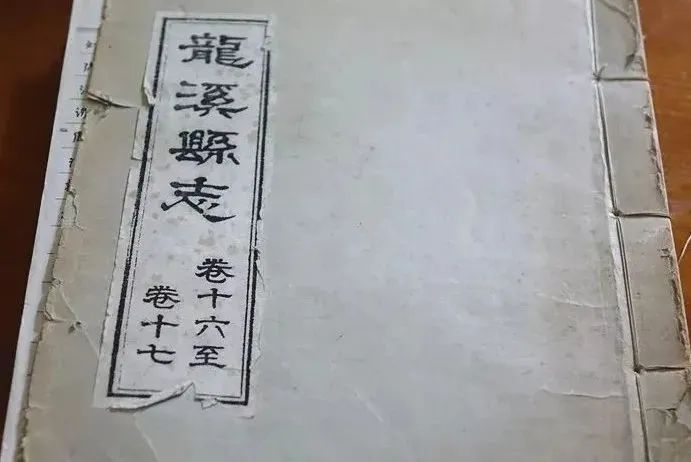 龍溪縣志
卷十六至
卷十七